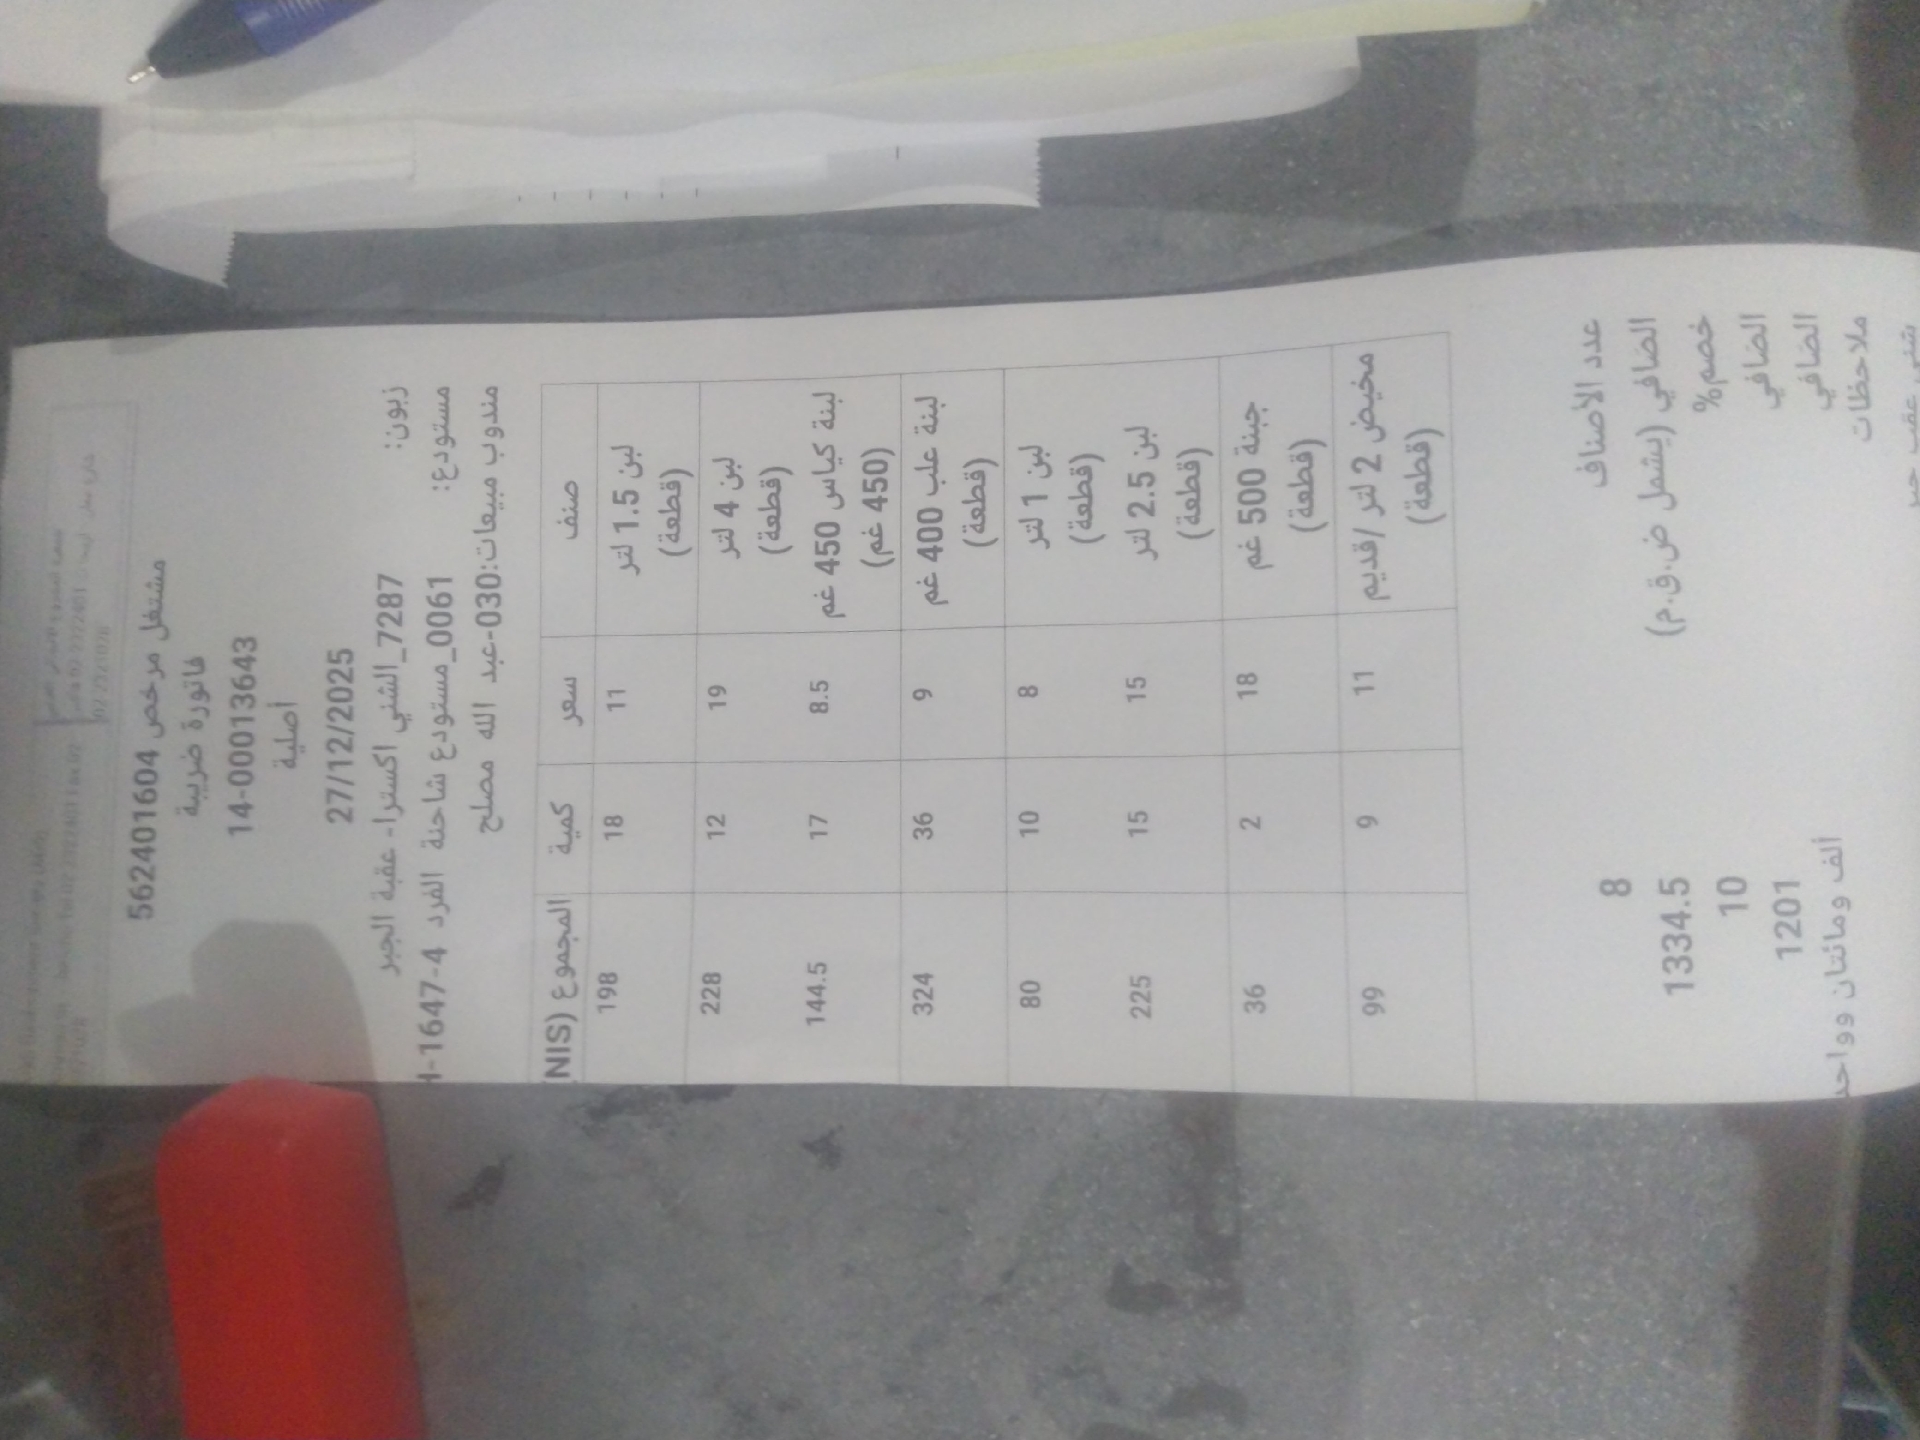 مشتغل مرخص 562401604
فاتورة ضريبة
14-00013643
أصلية
27/12/2025
زبون: 7287_الشني اكسترا- عقبة الجبر
مستودع: 0061_مستودع شاحنة الفرد 4-1647-H
مندوب مبيعات:030-عبد الله مصلح
صنف سعر كمية المجموع (NIS
لبن 1.5 لتر 11 18 198
(قطعة)
لبن 4 لتر 19 12 228
(قطعة)
لبنة كياس 450 غم 8.5 17 144.5
(450 غم)
لبنة علب 400 غم 9 36 324
(قطعة)
لبن 1 لتر 8 10 80
(قطعة)
لبن 2.5 لتر 15 15 225
(قطعة)
جبنة 500 غم 18 2 36
(قطعة)
مخيض 2 لتر /قديم 11 9 99
(قطعة)
عدد الاصناف 8
الضافي (يشمل ض.ق.م) 1334.5
خصم% 10
الضافي 1201
الضافي ألف ومائتان وواحد
ملاحظات